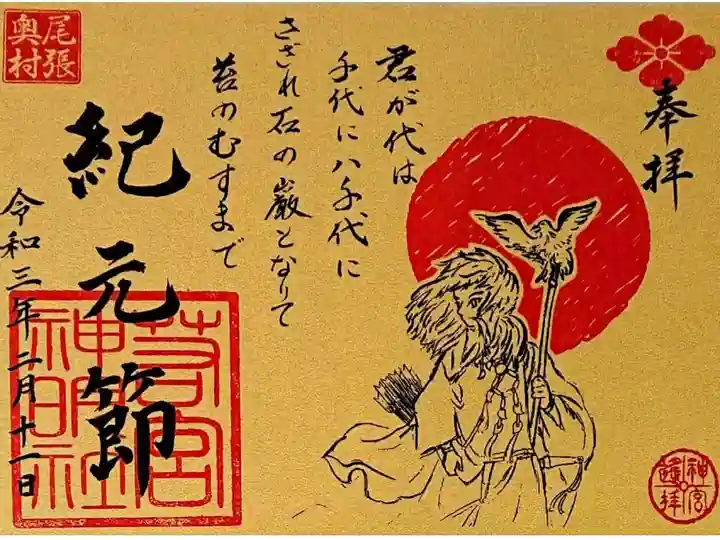 奉拝
君が代は
千代に八千代に
さざれ石の巌となりて
苔のむすまで
紀元節
令和三年二月十一日
尾張
奥村
若宮
神明社
神宮
遙拝